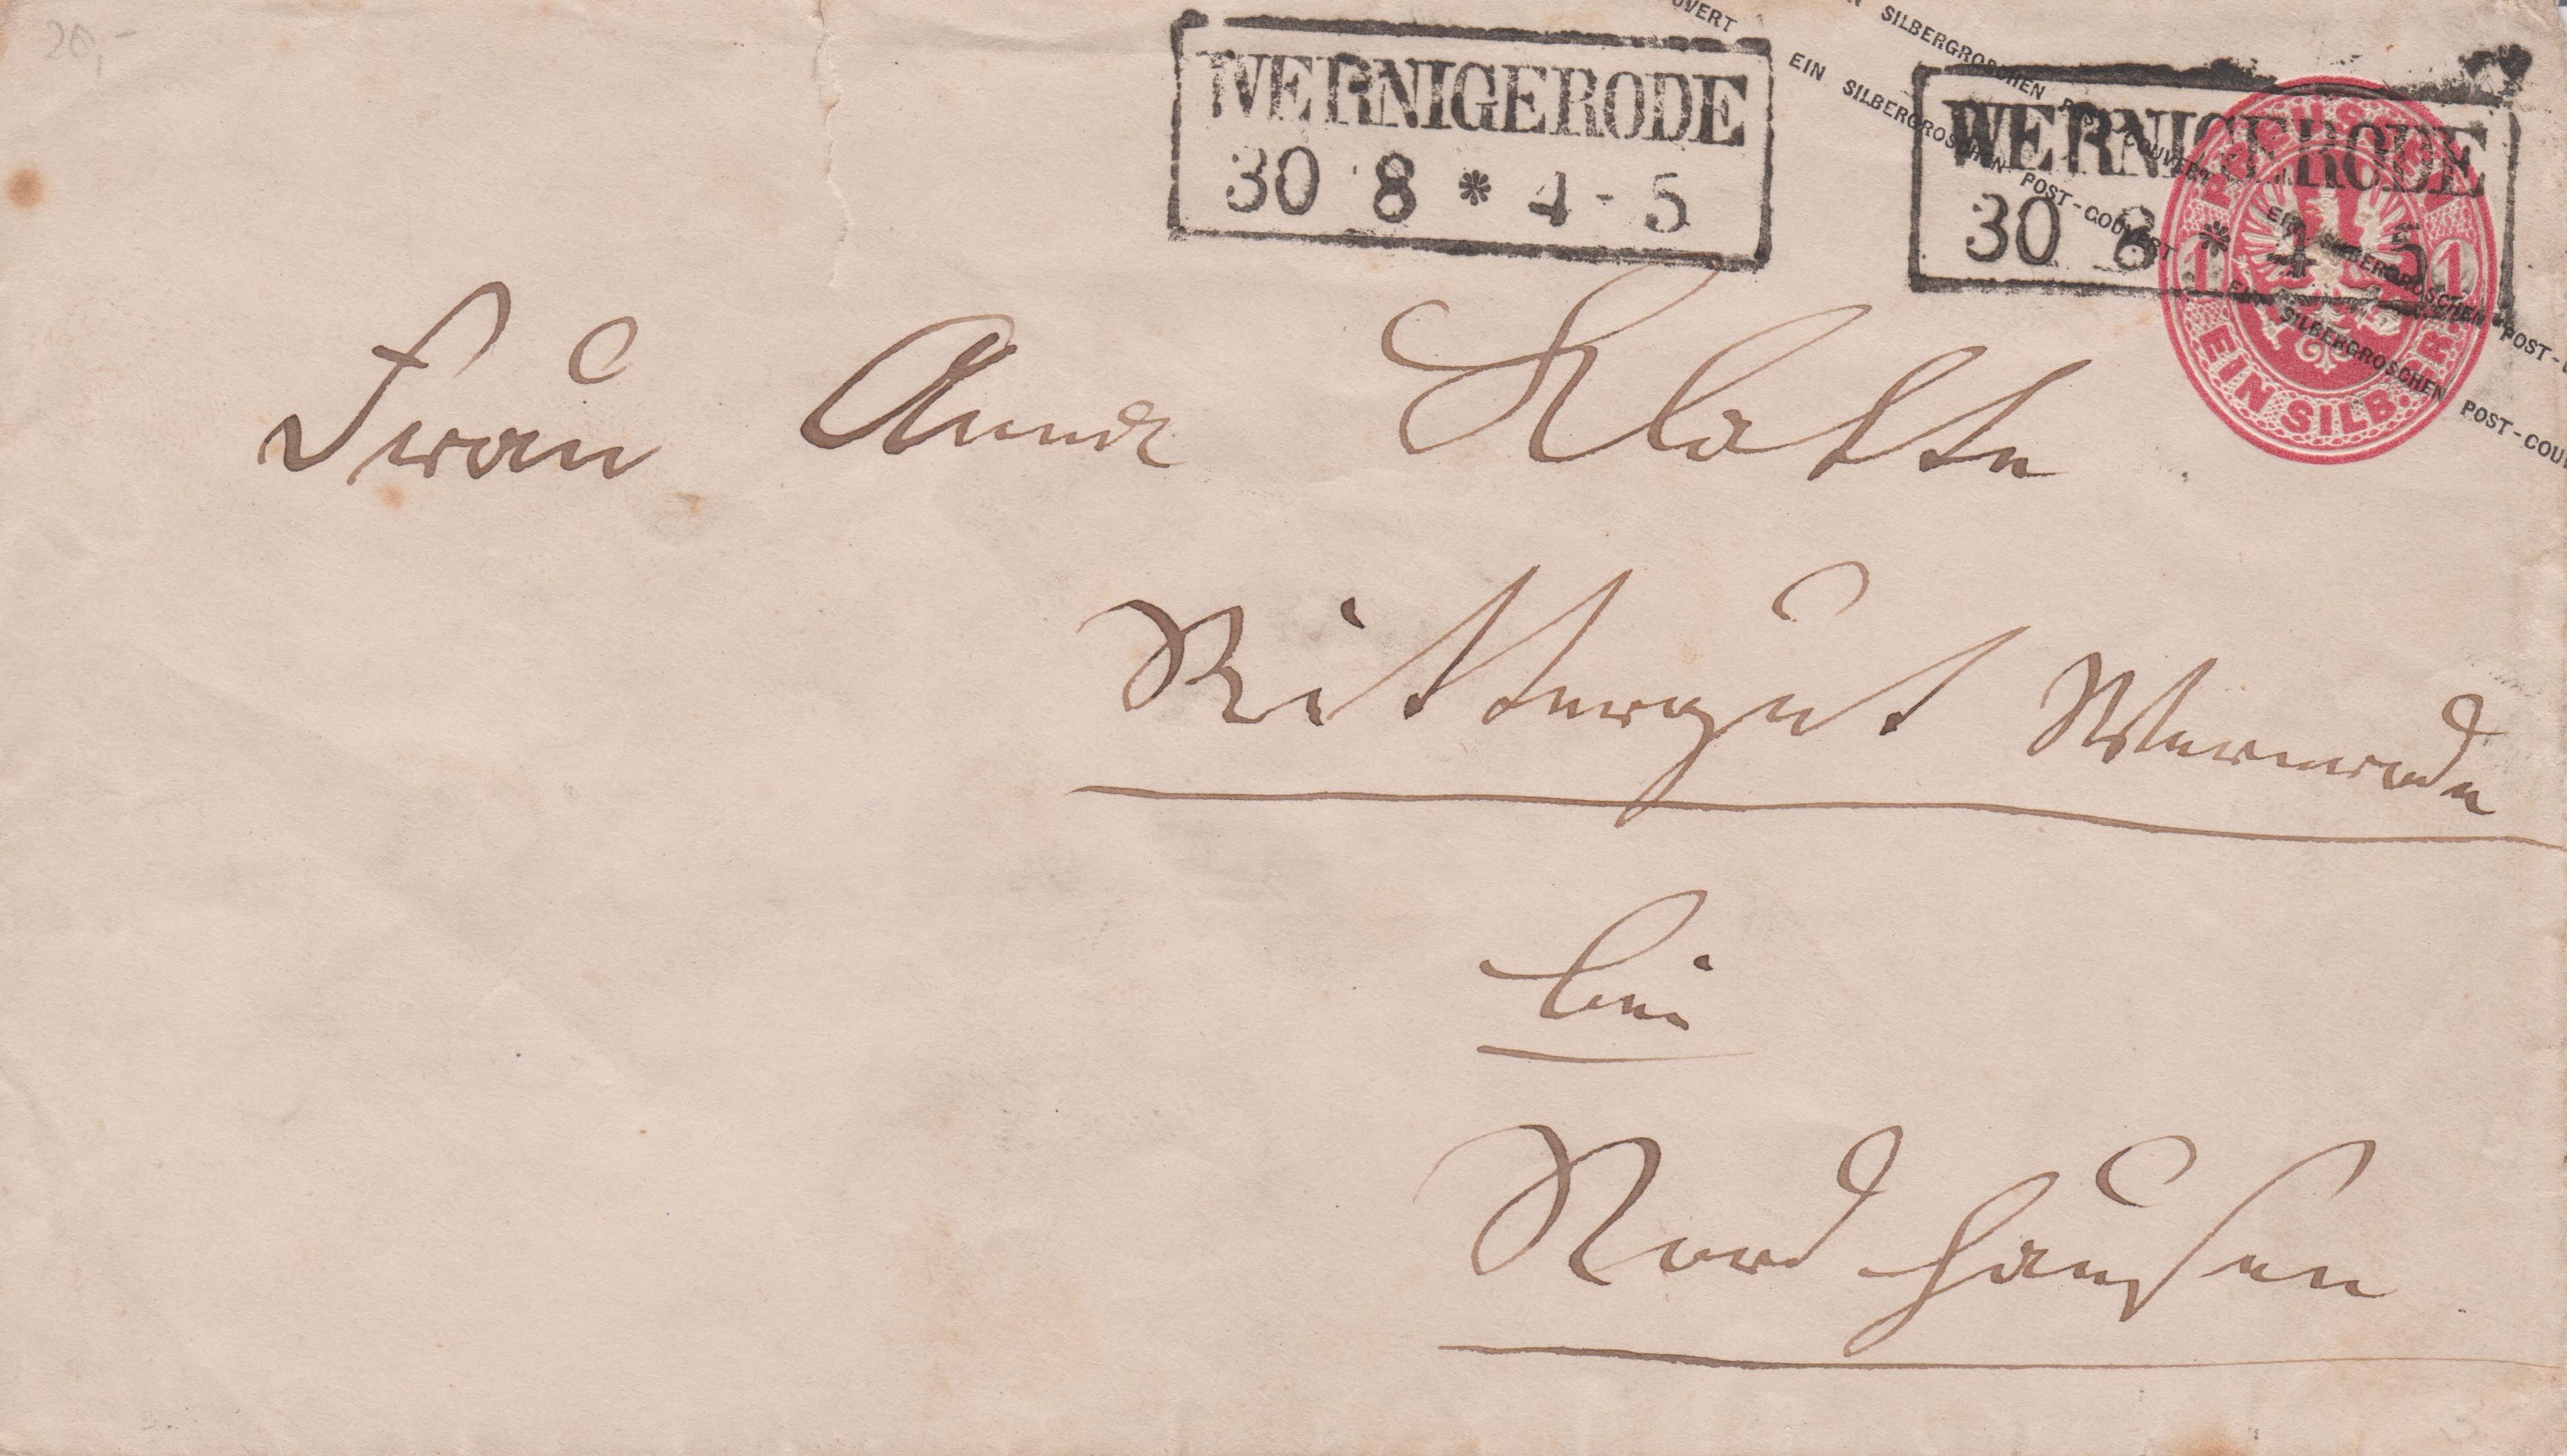 20,-
EIN SILBERGROSCHEN POST-COUVERT
EIN SILBERGROSCHEN POST-COUVERT
EIN SILBERGROSCHEN POST-
EIN SILBERGROSCHEN POST-COU
WERNIGERODE
30 8 * 4-5
WERNIGERODE
30 8 * 4-5
PREUSSEN
1 1
EIN SILB. GR.
Frau Anna Klotte
Rittergut Wernrode
bei
Nordhausen